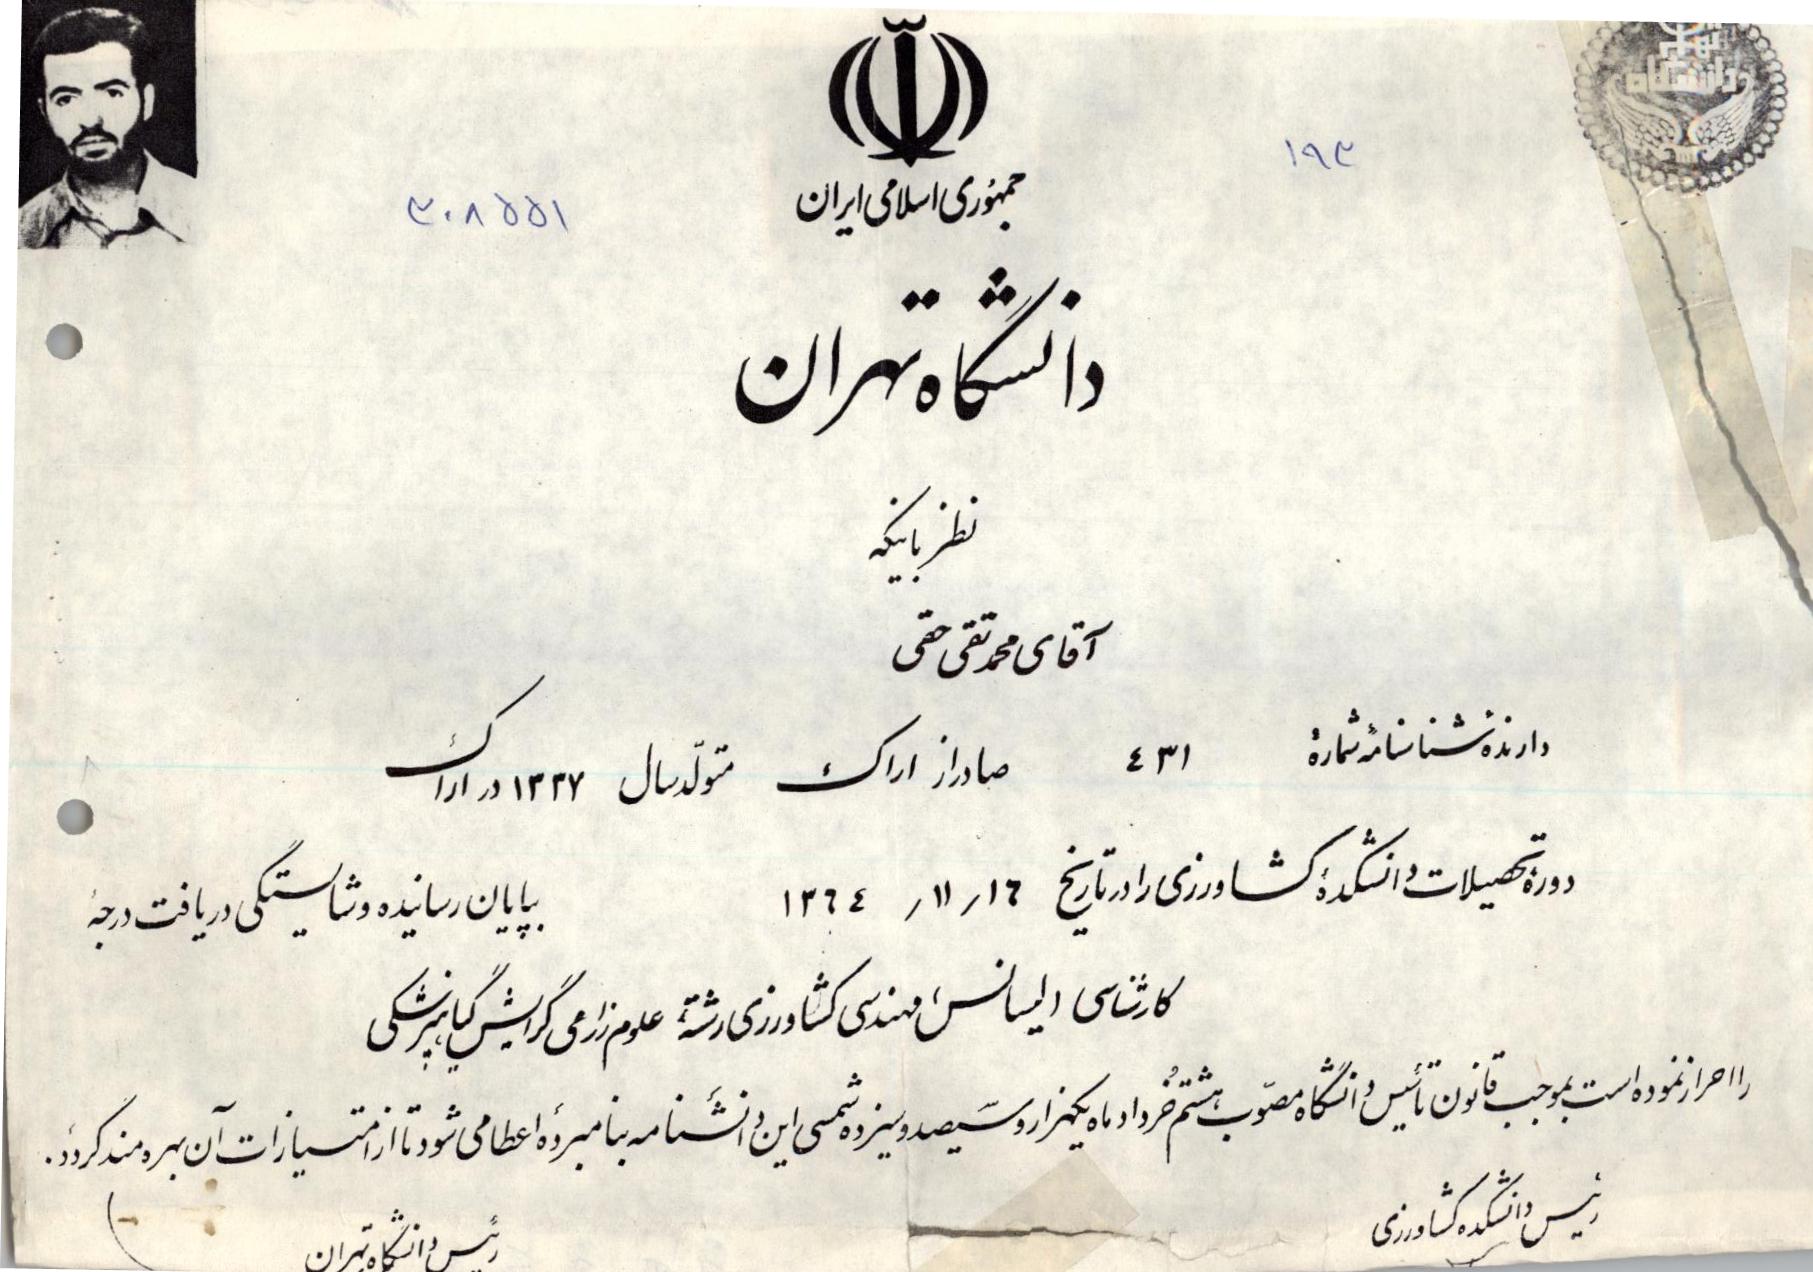 جمهوری اسلامی ایران
۱۹۳
۳۰۸۵۵۱
دانشگاه تهران
دانشگاه تهران
نظر باینکه
آقای محمد تقی حقی
دارندهٔ شناسنامهٔ شمارهٔ ۴۳۱ صادر از اراک متولّد سال ۱۳۳۷ در اراک
دورهٔ تحصیلات دانشکدهٔ کشاورزی را در تاریخ ۱۶ر ۱۱ر ۱۳۶۴ بپایان رسانیده و شایستگی دریافت درجهٔ
کارشناسی (لیسانس) مهندسی کشاورزی رشتهٔ علوم زراعی گرایش گیاهپزشکی
را احراز نموده است بموجب قانون تأسیس دانشگاه مصوّب هشتم خرداد ماه یکهزار و سیصد و سیزده شمسی این دانشنامه بنامبرده اعطا می شود تا از امتیازات آن بهره مند گردد.
رئیس دانشکده کشاورزی
رئیس دانشگاه تهران